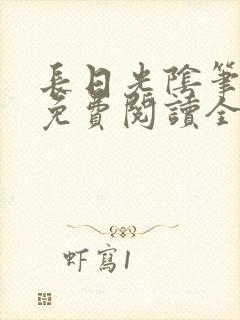 長日光陰筆
免費閱讀全
虾寫1